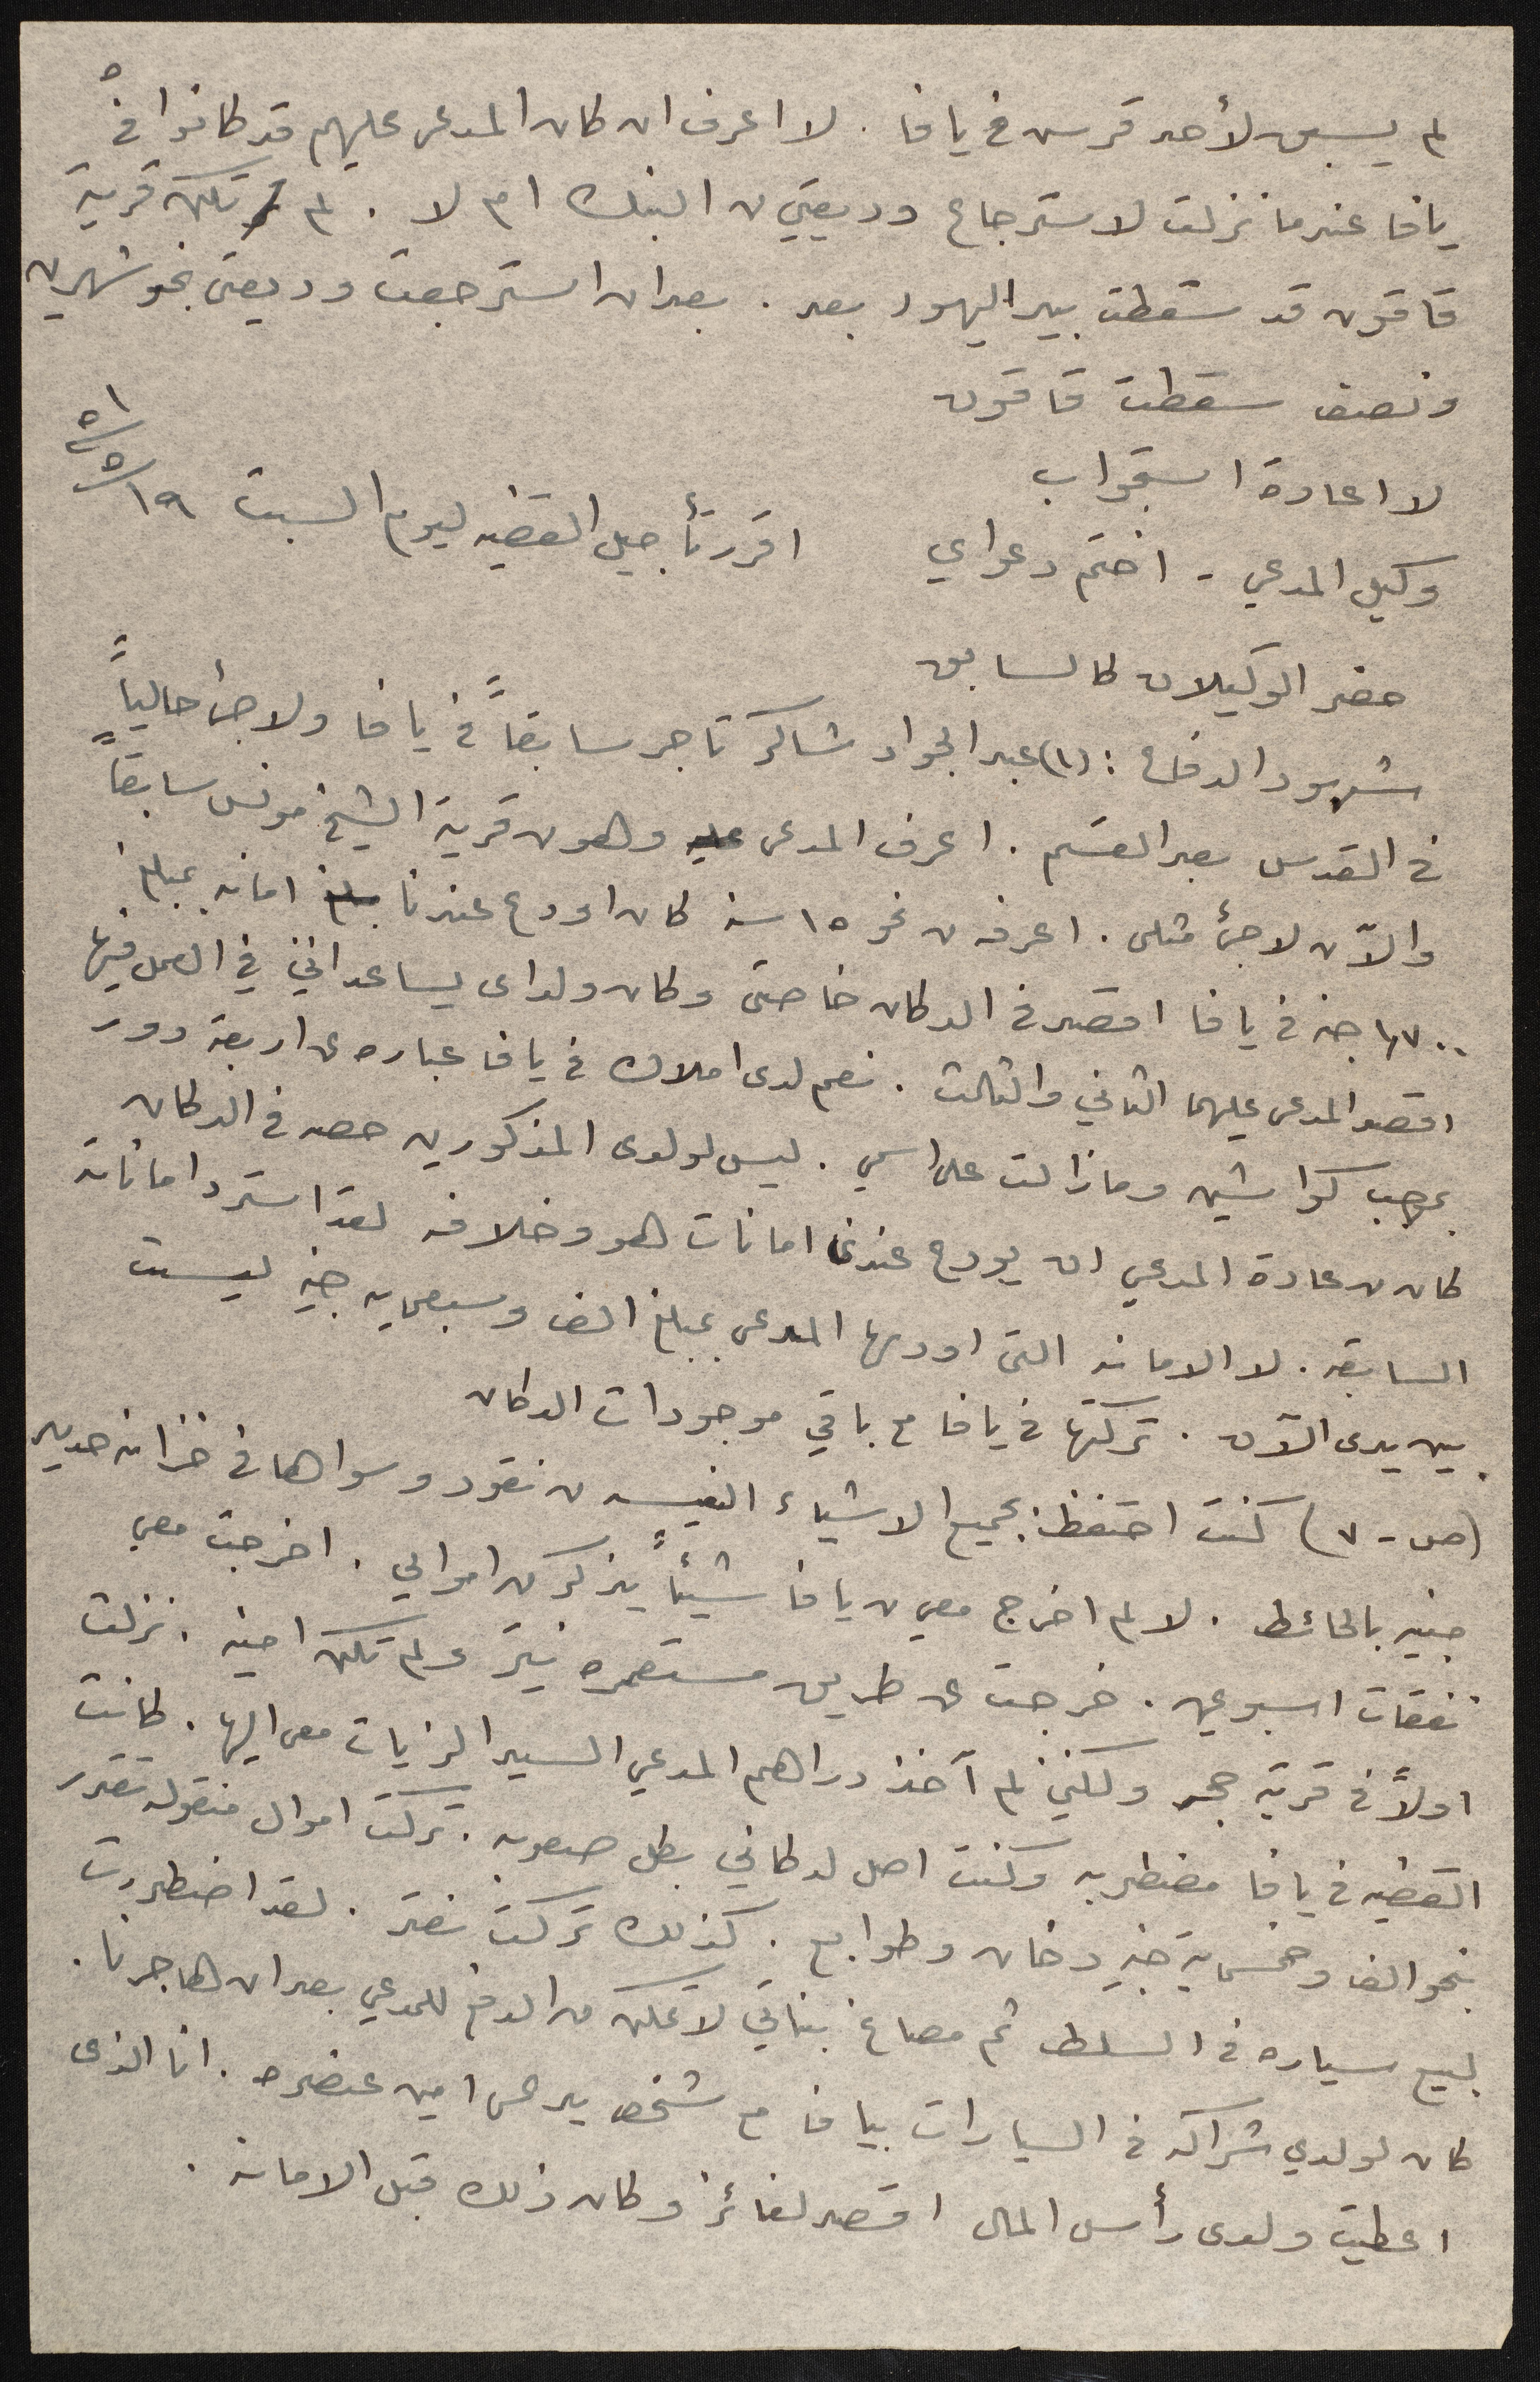 ٥
لم يسبق لأحد قرس في يافا . لا اعرف ان كان المدعى عليهم قد كانوا في
يافا عندما نزلت لاسترجاع وديعتي من البنك ام لا . لم تكن قرية
قاقون قد سقطت بيد اليهود بعد . بعد ان استرجعت وديعتي بنحو شهرين
ونصف سقطت قاقون
لا اعادة استجواب
وكيل المدعي - اختم دعواي اقرر تأجيل القضيه ليوم السبت ١٩/٥/٥١
حضر الوكيلان كالسابق
شهود الدفاع : (١) عبد الجواد شاكر تاجر سابقاً في يافا ولاجئ حالياً
في القدس بعد القسم . اعرف المدعى عليه وهو من قرية الشيخ مونس سابقاً
والآن لاجئ مثلي . اعرفه من نحو ١٥ سنه كان اودع عندنا مبلغ امانه بمبلغ
١٧٠٠ جنه في يافا اقصد في الدكان خاصتي وكان ولداي يساعداني في العمل فيها
اقصد المدعى عليهما الثاني والثالث . نعم لدى املاك في يافا عباره عن اربعة دور
بموجب كواشين وما زالت على اسمي . ليس لولدى المذكورين حصه في الدكان
كان من عادة المدعي ان يودع عندنا امانات هو وخلافه لقد استرد اماناته
السابقه . لا الامانه التي اودعها المدعى بمبلغ الف وسبعمايه جنيه ليست
بين يدى الآن . تركتها في يافا مع باقي موجودات الدكان
(ص - ٧) كنت احتفظ بجميع الاشياء النفيسه من نقود وسواها في خزانه حديد
جنيه بالحائط . لا لم اخرج معي من يافا شيئاً يذكر من اموالي . اخرجت معي
نفقات اسبوعين . خرجت عن طريق مستعمره نيتر ولم تكن امينه . نزلت
اولاً في قرية جمجر ولكني لم آخذ دراهم المدعي السيد الزيات معى اليها . كانت
القضيه في يافا مضطربه وكنت اصل لدكاني بكل صعوبه . تركت اموال منقوله تقدر
بنحو الف وخمسمايه جنيه دخان وطوابع . كذلك تركت نقد . لقد اضطررت
لبيع سياره في السلط ثم مصاغ بناتي لاتمكن من الدفع للمدعي بعد ان هاجرنا .
كان لولدي شراكه في السيارات بيافا مع شخص يدعى امين عنضره . انا الذى
اعطيت ولدى رأس المال اقصد لفائز وكان ذلك قبل الامانه .